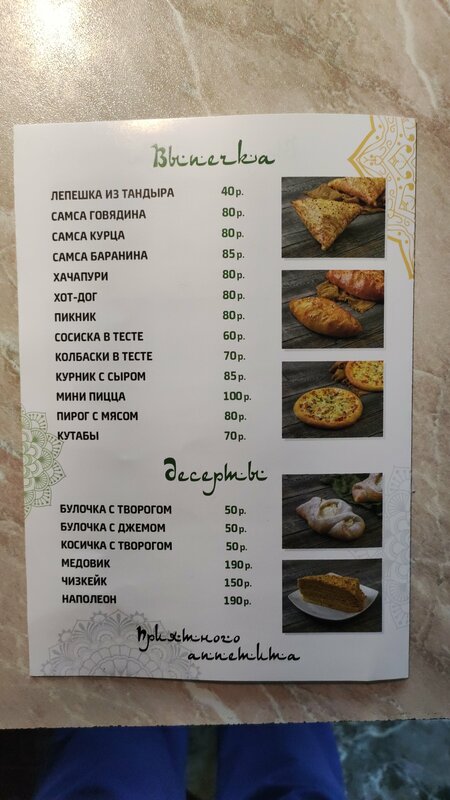 Выпечка
ЛЕПЕШКА ИЗ ТАНДЫРА 40 р.
САМСА ГОВЯДИНА 80 р.
САМСА КУРЦА 80 р.
САМСА БАРАНИНА 85 р.
ХАЧАПУРИ 80 р.
ХОТ-ДОГ 80 р.
ПИКНИК 80 р.
СОСИСКА В ТЕСТЕ 60 р.
КОЛБАСКИ В ТЕСТЕ 70 р.
КУРНИК С СЫРОМ 85 р.
МИНИ ПИЦЦА 100 р.
ПИРОГ С МЯСОМ 80 р.
КУТАБЫ 70 р.
Десерты
БУЛОЧКА С ТВОРОГОМ 50 р.
БУЛОЧКА С ДЖЕМОМ 50 р.
КОСИЧКА С ТВОРОГОМ 50 р.
МЕДОВИК 190 р.
ЧИЗКЕЙК 150 р.
НАПОЛЕОН 190 р.
Приятного
аппетита